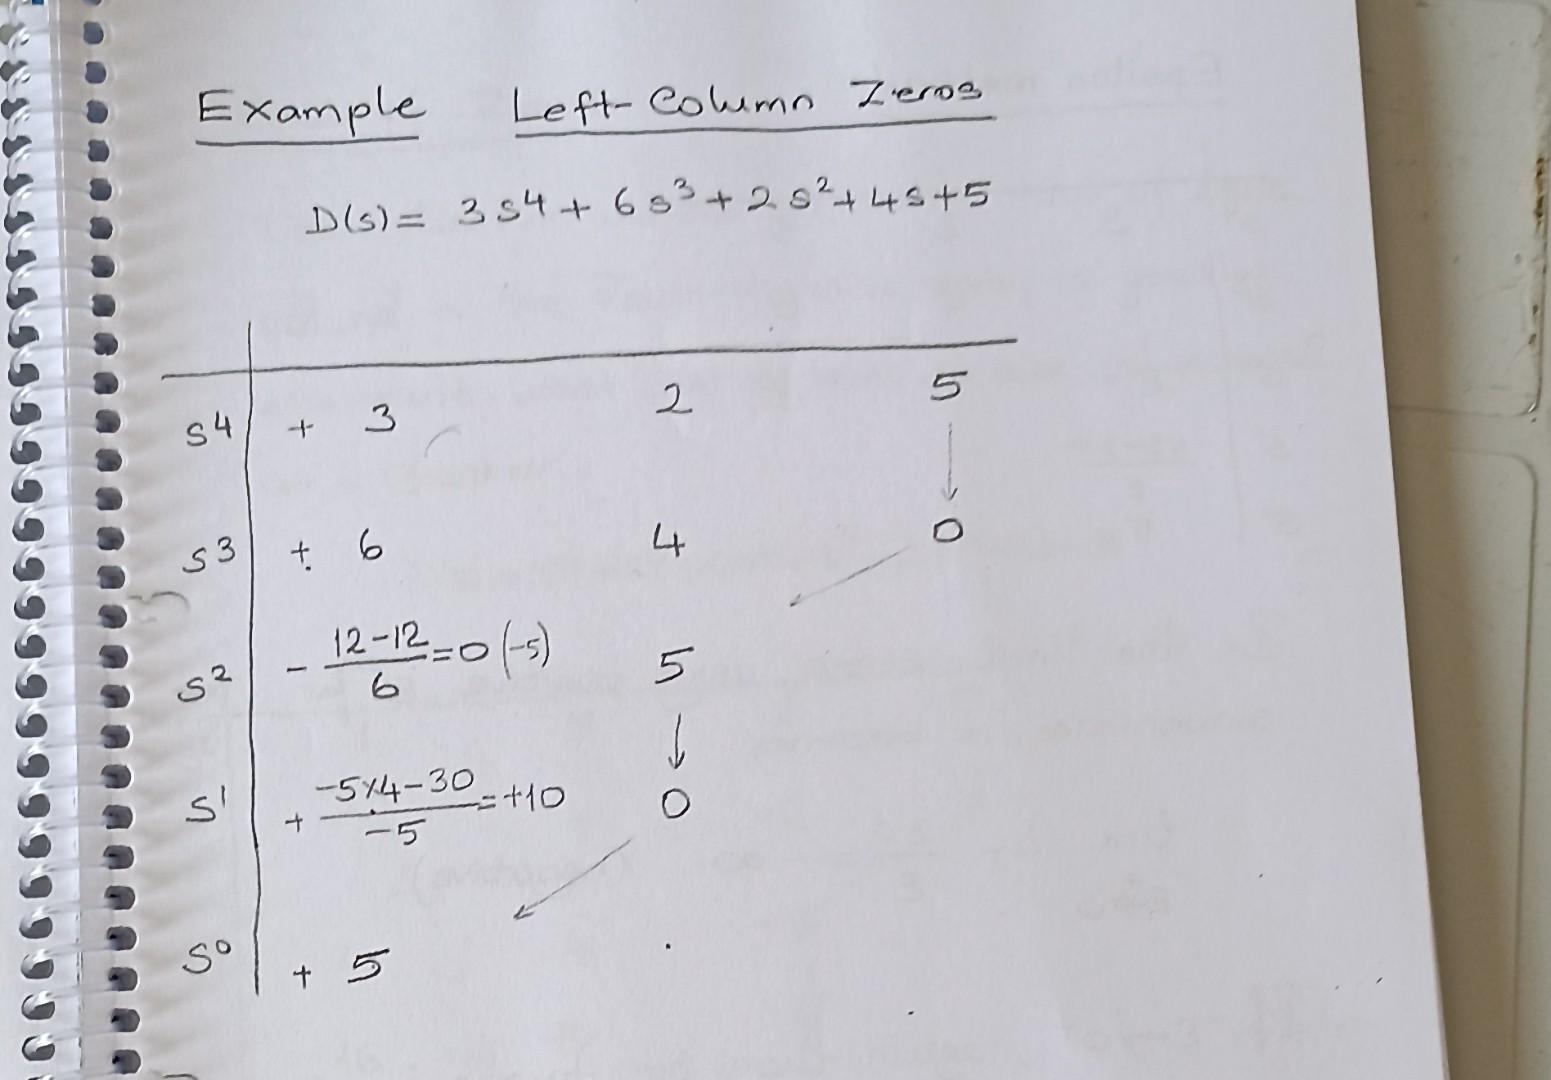 Example Left-Column Zeros
D(s)= 3s⁴+ 6s³+2s²+4s+5
s⁴ + 3 2 5
s³ + 6 4 0
s² - (12-12)/6=0 (-5) 5
s¹ + (-5×4-30)/-5=+10 0
s⁰ + 5